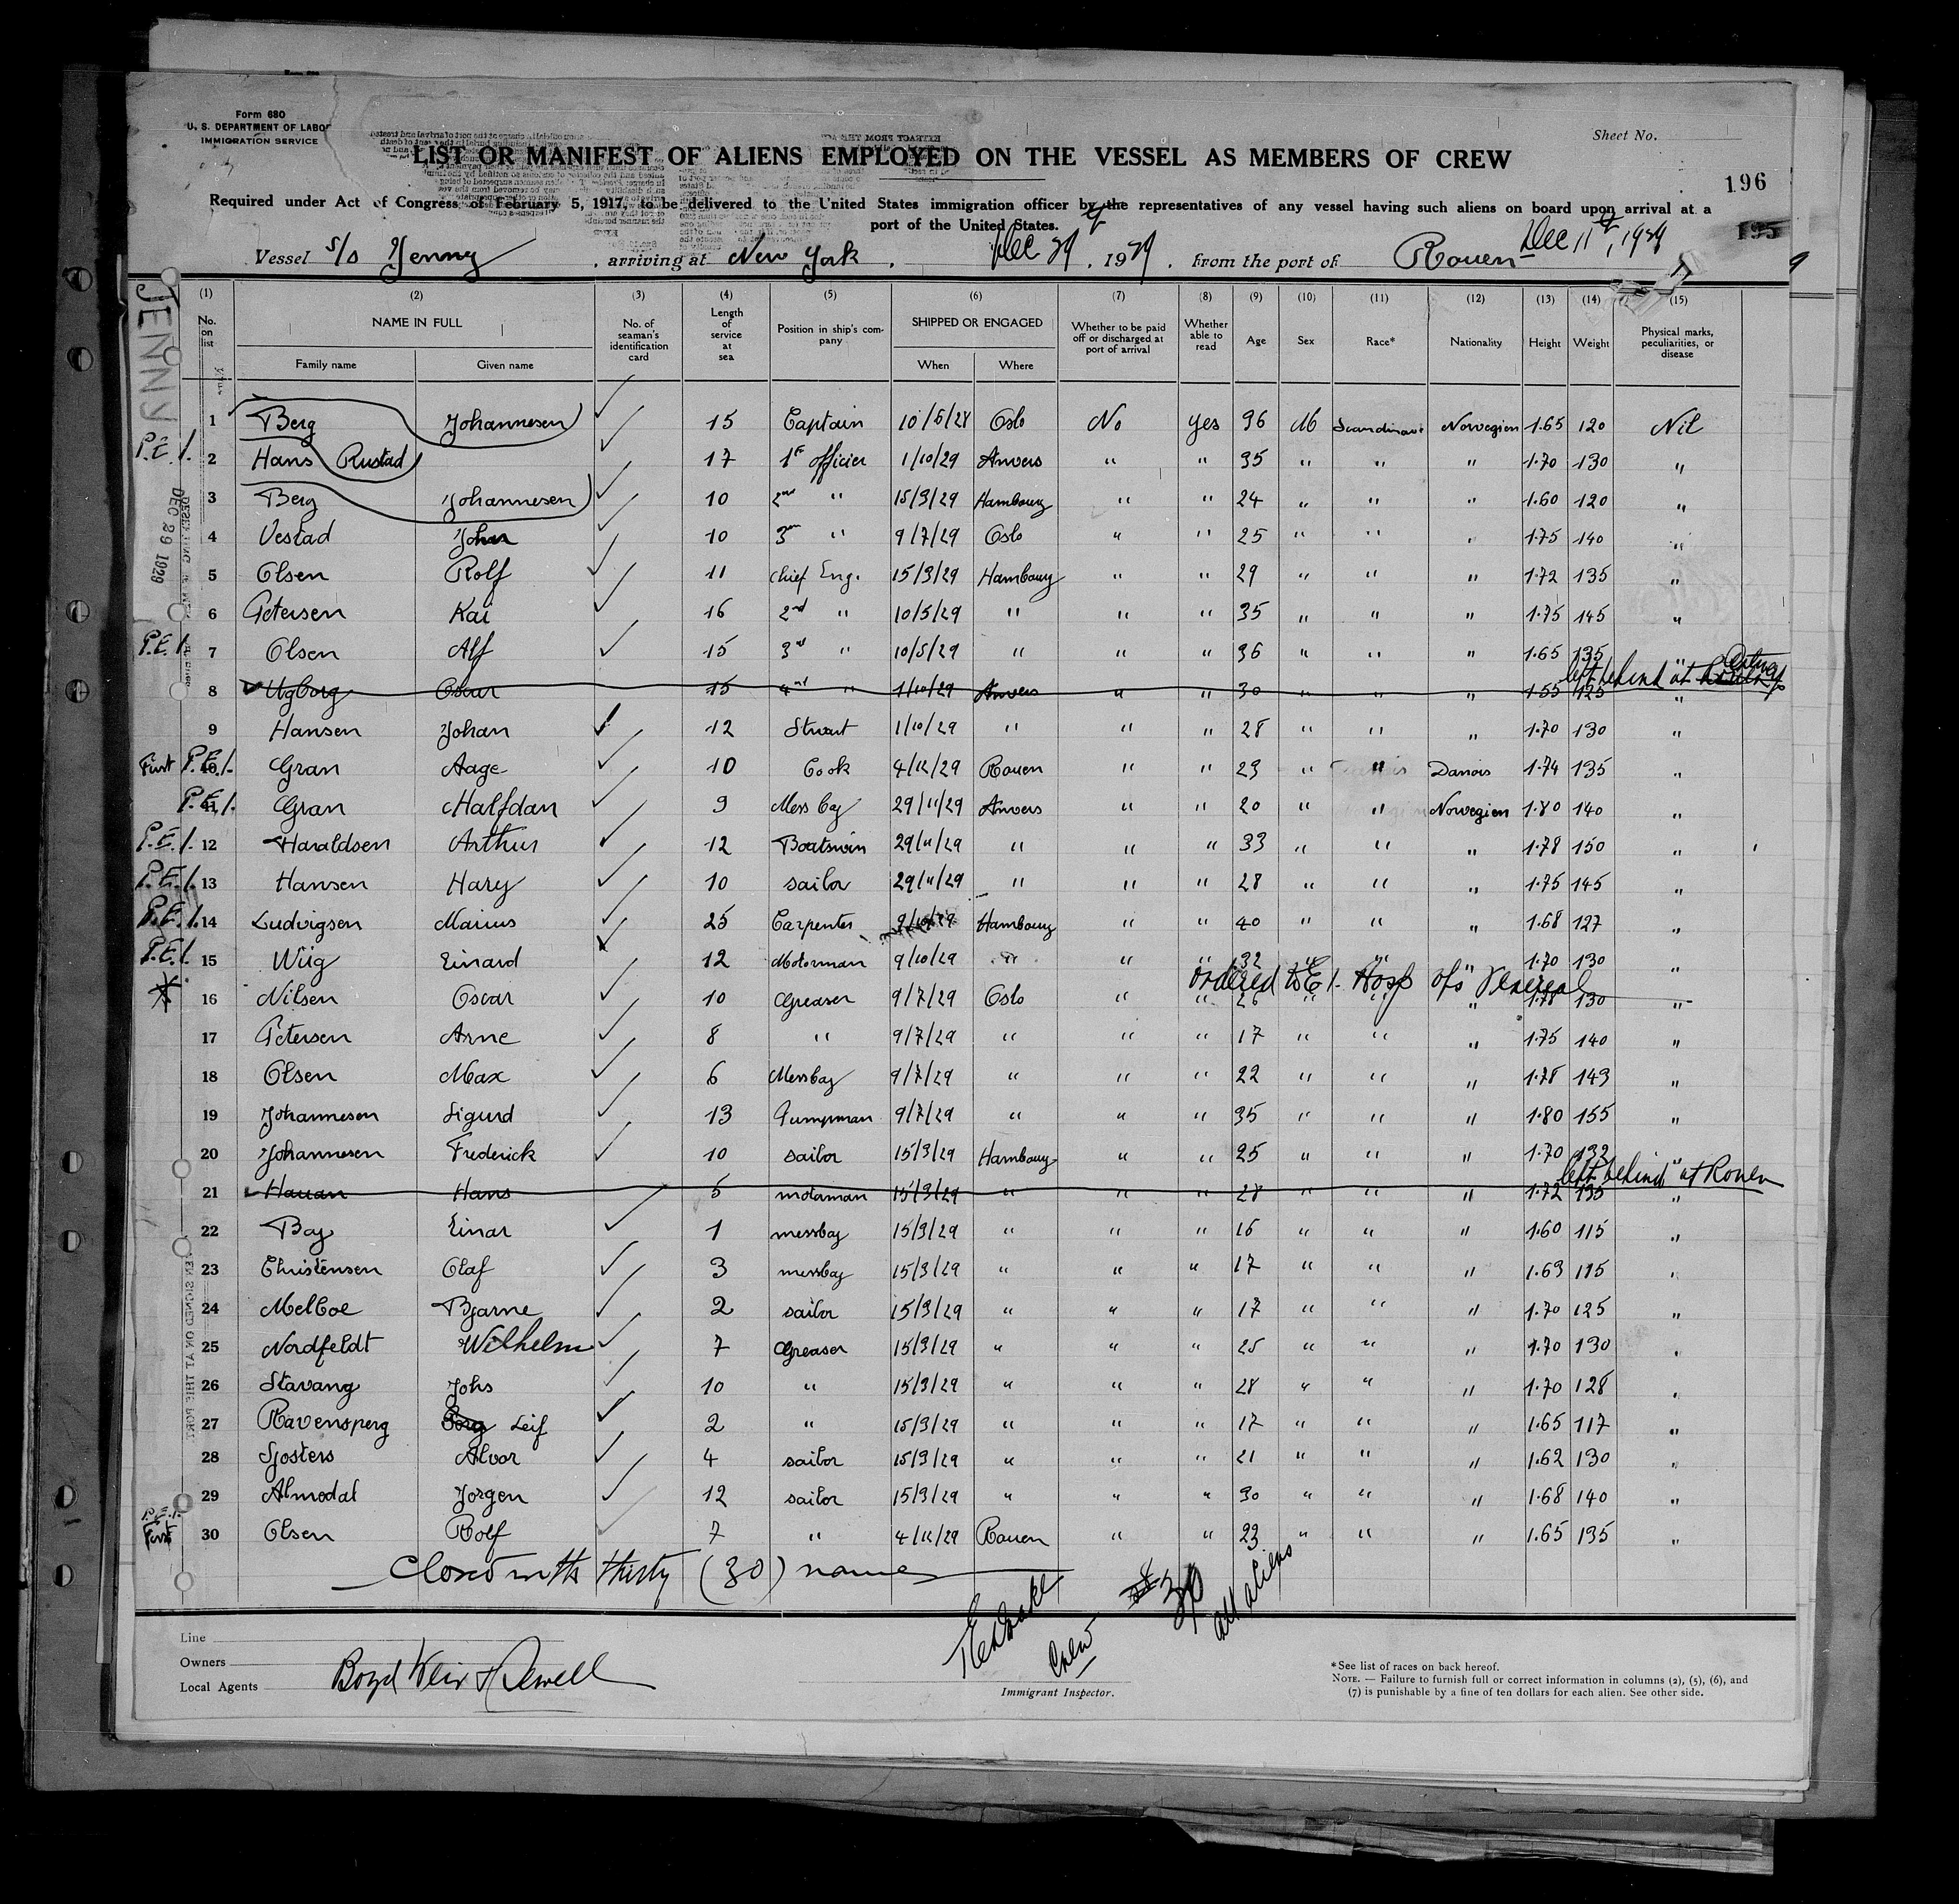 Form 680
U. S. DEPARTMENT OF LABOR
IMMIGRATION SERVICE
Sheet No.
LIST OR MANIFEST OF ALIENS EMPLOYED ON THE VESSEL AS MEMBERS OF CREW
196
Required under Act of Congress of February 5, 1917, to be delivered to the United States immigration officer by the representatives of any vessel having such aliens on board upon arrival at a
port of the United States.
195
Vessel S/S Jenny, arriving at New York, Dec 29, 1929, from the port of Rouen Dec 11th, 1929
JENNY
DEC 29 1929
(1) (2) (3) (4) (5) (6) (7) (8) (9) (10) (11) (12) (13) (14) (15)
No. on list NAME IN FULL No. of seaman's identification card Length of service at sea Position in ship's company SHIPPED OR ENGAGED Whether to be paid off or discharged at port of arrival Whether able to read Age Sex Race* Nationality Height Weight Physical marks, peculiarities, or disease
Family name Given name When Where
1 Berg Johannesen 15 Captain 10/5/28 Oslo No yes 36 M Scandinave Norvegien 1.65 120 Nil
P.E.1. 2 Hans Rustad 17 1st officier 1/10/29 Anvers " " 35 " " " 1.70 130 "
3 Berg Johannesen 10 2nd " 15/3/29 Hambourg " " 24 " " " 1.60 120 "
4 Vestad John 10 3rd " 9/7/29 Oslo " " 25 " " " 1.75 140 "
5 Olsen Rolf 11 chief Eng. 15/3/29 Hambourg " " 29 " " " 1.72 135 "
6 Petersen Kai 16 2nd " 10/5/29 " " " 35 " " " 1.75 145 "
P.E.1. 7 Olsen Alf 15 3rd " 10/5/29 " " " 36 " " " 1.65 135 "
left behind at
8 Ugborg Oscar 15 4nd " 1/10/29 Anvers " " 30 " " " 1.55 125 "
9 Hansen Johan 12 Stuart 1/10/29 " " " 28 " " " 1.70 130 "
First P.E.1. 10 Gran Aage 10 Cook 4/12/29 Rouen " " 23 " " Danois 1.74 135 "
P.E.1. 11 Gran Halfdan 3 Mess boy 29/11/29 Anvers " " 20 " " Norvegien 1.80 140 "
P.E.1. 12 Haraldsen Arthur 12 Boatswin 29/11/29 " " " 33 " " " 1.78 150 "
P.E.1. 13 Hansen Hary 10 sailor 29/11/29 " " " 28 " " " 1.75 145 "
P.E.1. 14 Ludvigsen Marius 25 Carpenter 9/10/29 Hambourg " " 40 " " " 1.68 127 "
P.E.1. 15 Wiig Einard 12 Motorman 9/10/29 " " " 32 " " " 1.70 130 "
ordered to E1. Hosp ofs Venereal
16 Nilsen Oscar 10 Greaser 9/7/29 Oslo " " 26 " " " 1.78 130 "
17 Petersen Arne 8 " 9/7/29 " " " 17 " " " 1.75 140 "
18 Olsen Max 6 Messboy 9/7/29 " " " 22 " " " 1.78 143 "
19 Johannesen Sigurd 13 Pumpman 9/7/29 " " " 35 " " " 1.80 155 "
20 Johannesen Frederick 10 sailor 15/3/29 Hambourg " " 25 " " " 1.70 132 "
left behind at Rouen
21 Hauan Hans 5 motorman 15/3/29 " " " 28 " " " 1.72 135 "
22 Boy Einar 1 messboy 15/3/29 " " " 16 " " " 1.60 115 "
23 Christensen Olaf 3 messboy 15/3/29 " " " 17 " " " 1.63 115 "
24 Melboe Bjarne 2 sailor 15/3/29 " " " 17 " " " 1.70 125 "
25 Nordfeldt Wilhelm 7 Greaser 15/3/29 " " " 25 " " " 1.70 130 "
26 Stavang Johs 10 " 15/3/29 " " " 28 " " " 1.70 128 "
27 Ravensperg Leif 2 " 15/3/29 " " " 17 " " " 1.65 117 "
28 Sjosters Alvar 4 sailor 15/3/29 " " " 21 " " " 1.62 130 "
29 Almodal Jorgen 12 sailor 15/3/29 " " " 30 " " " 1.68 140 "
P.E.1. First 30 Olsen Rolf 7 " 4/12/29 Rouen " " 23 " " " 1.65 135 "
Closed with thirty (30) names
30 all aliens
Crew
Line
Owners
Local Agents Boyd Weir & Sewell
Immigrant Inspector.
*See list of races on back hereof.
NOTE. — Failure to furnish full or correct information in columns (2), (5), (6), and
(7) is punishable by a fine of ten dollars for each alien. See other side.